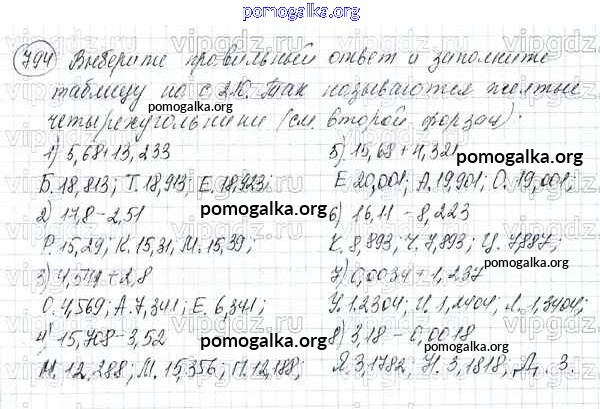 pomogalka.org
794 Выберите правильный ответ и заполните
таблицу на с 210. Так называются желтые
pomogalka.org
четырехугольники (см. второй форзац).
1) 5,68+13,233
5) 15,68+4,321
pomogalka.org
Б. 18,813; Т. 18,913; Е. 18,923;
Е 20,001; А. 19,901; О. 19,001;
2) 17,8-2,51
pomogalka.org
6) 16,11-8,223
Р. 15,29; К. 15,31; М. 15,39;
К. 8,893; Ч. 7,893; Ц. 7,887;
3) 4,541+2,8
pomogalka.org
7) 0,0034+1,237
О. 4,569; А. 7,341; Е. 6,341;
У. 1,2304; И. 1,2404; Л. 1,3404;
4) 15,708-3,52
pomogalka.org
8) 3,18-0,0018
Н. 12,288; М. 15,356; П. 12,188;
Я. 3,1782; Н. 3,1818; Д. 3.
pomogalka.org